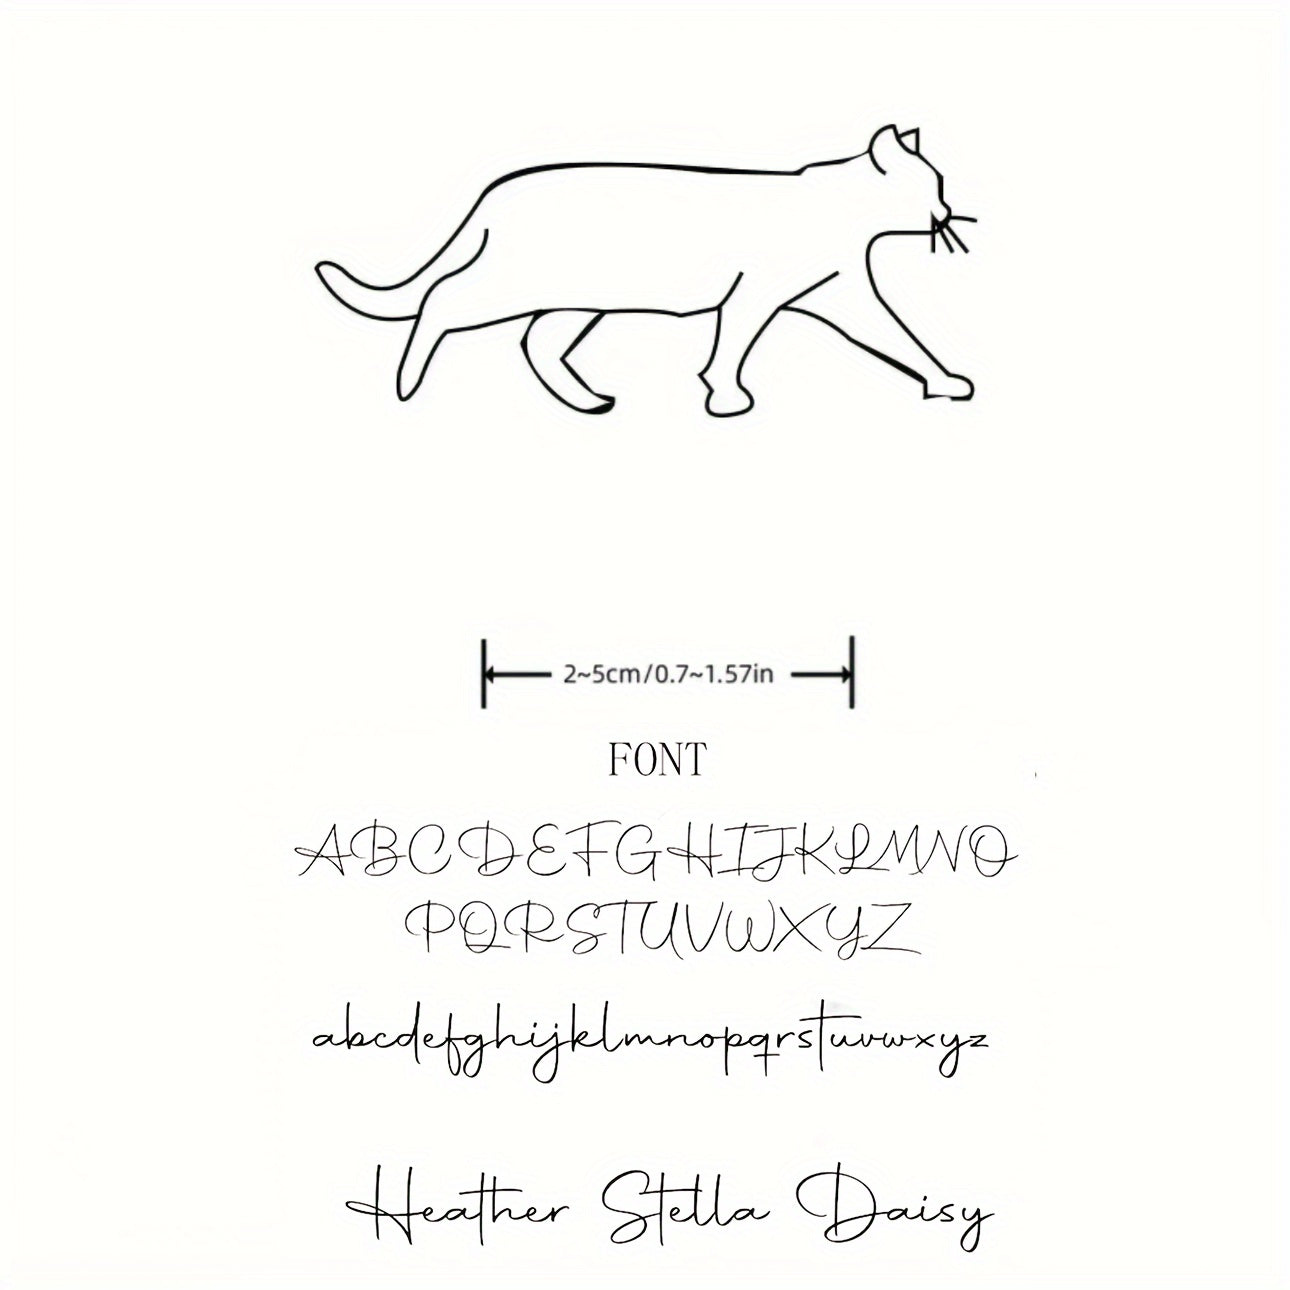 2~5cm/0.7~1.57in
FONT
ABCDEFGHIJKLMNO
PQRSTUVWXYZ
abcdefghijklmnopqrstuvwxyz
Heather Stella Daisy